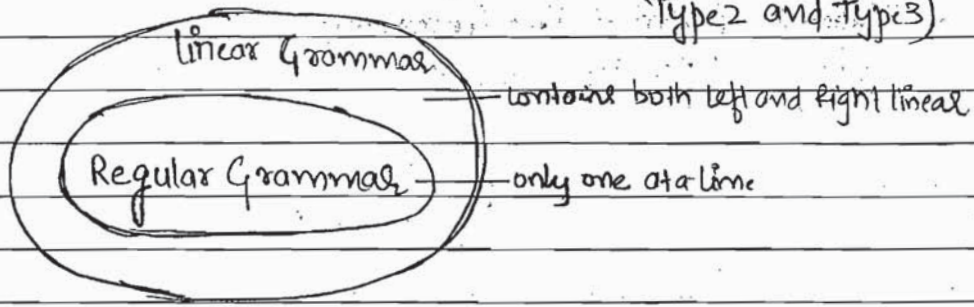 Type2 and Type3)
Linear Grammar
contains both left and Right linear
Regular Grammar
only one at a time